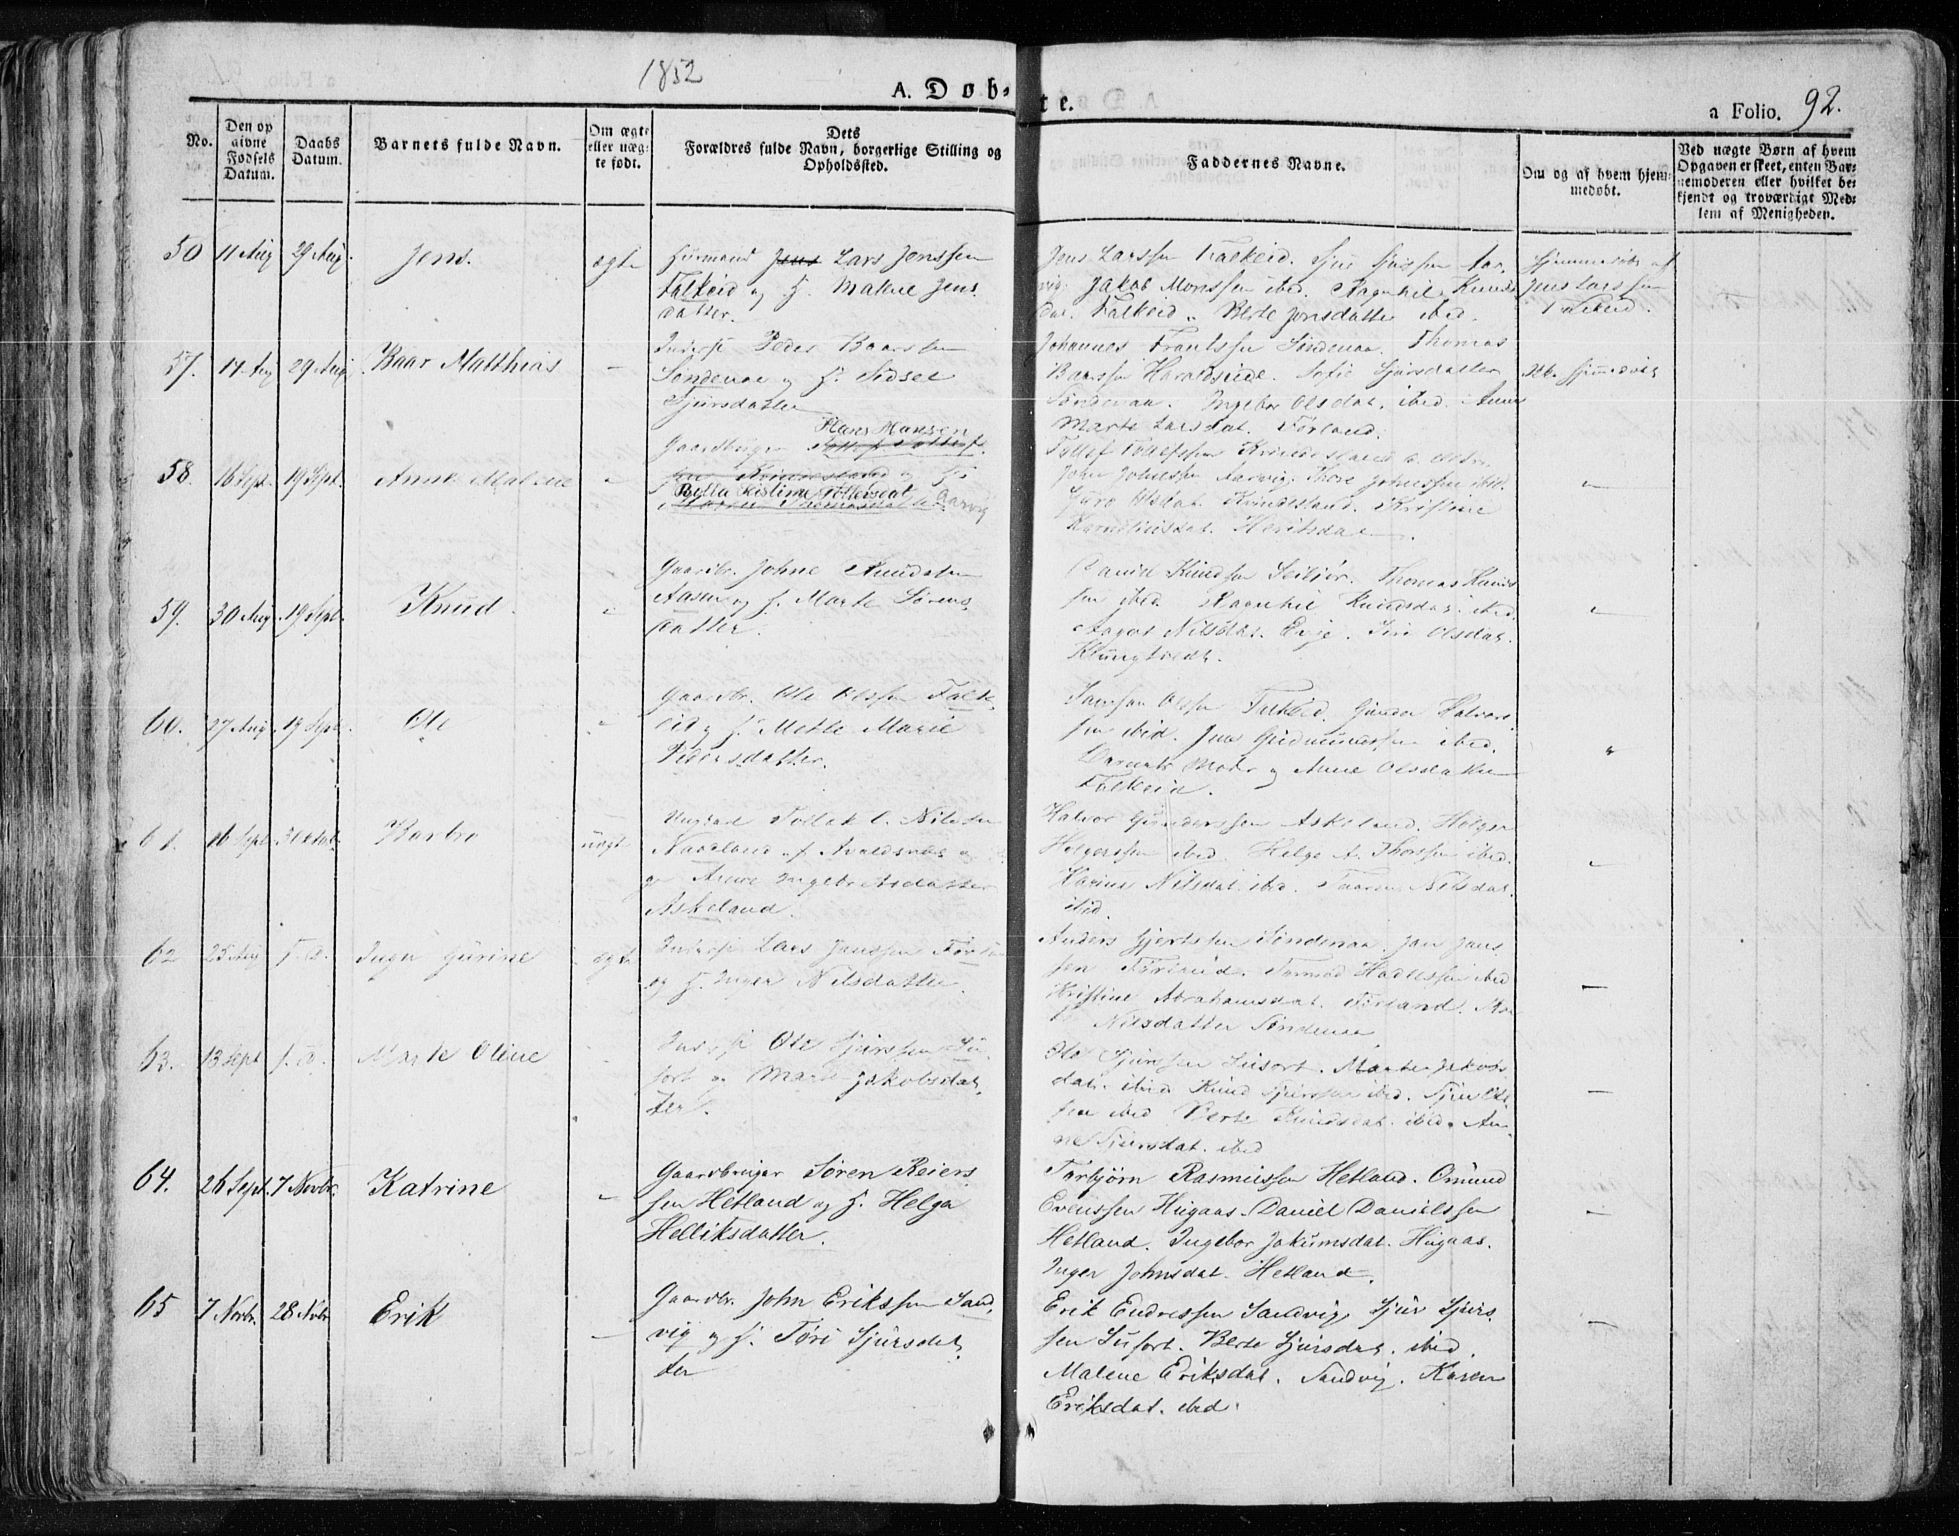 1852
A. Døb-
te.
a Folio. 92.
No.
Den op
givne
Fødsels
Datum.
Daabs
Datum.
Barnets fulde Navn.
Om ægte
eller uæg-
te født.
Dets
Forældres fulde Navn, borgerlige Stilling og
Opholdssted.
Faddernes Navne.
Om og af hvem hjem-
medøbt.
Ved uægte Børn af hvem
Opgaven er skeet, enten Bar-
nemoderen eller hvilket be-
kjendt og troværdigt Med-
lem af Menigheden.
50 11 Aug 29 Aug. Jens. ægte
Huusmand Jens Lars Jenssen
Falkeid og H. Malene Jens
datter.
Jens Larssen Falkeid. Sjur Sjurssen Aar-
vig. Jakob Monssen ibid. Ragnhil Knuds
dat. Falkeid. Berte Jonsdatter ibid.
Hjemmedøbt af
Jens Larssen
Falkeid.
57. 17 Aug 29 Aug Baar Matthias –
Inderst Peder Baarssen
Søndenaa og H. Sidsel
Sjursdatter
Johannes Frantssen Søndenaa. Thomas
Baarssen Haraldseide. Sofie Sjursdatter
Søndenaa. Ingebor Olsdat. ibid. Anne
Marte Larsdat. Førland.
Hjemmedøbt
58. 16 Sept. 19 Sept. Anne Malene
Hans Hansen
Gaardbruger
Kristine Tollefsdat Aarvig
Thomasdat
Tollef Tollefssen Krindesland
John Johnssen Aarvig. Thore Johnssen ibid.
Guro Olsdat Krindesland. Kristine
Kornelius dat.
59. 30 Aug. 19 Sept. Knud
Gaardbr. Johne Knudsen
og H. Marte Sørens
datter.
David Knudsen Seibjør. Thomas Knuds
sen ibid. Ragnhil Knudsdat. ibid.
Aagot Nilsdat. Eeje. Siri Olsdat.
Klungtvedt.
60. 27 Aug. 19 Sept. Ole
Gaardbr. Ole Olssen Falk
eid og H. Mette Marie
Pedersdatter.
Samson Olssen Falkeid. Gunder Halvors
sen ibid. Jens Gudmundssen ibid.
Mohr og Anne Olsdatter
Falkeid.
61. 16 Sept 3 Oktob. Barbro uægt
Ungkarl Tollak O. Nilssen
Naadland af Avaldsnæs
og Anne Ingebr. Asdatter
Askeland.
Halvor Gunderssen Askeland. Helge
Helgerssen ibid. Helge A. Thorssen ibid.
Karine Nilsdat. ibid. Taaren Nilsdat.
ibid.
62 25 Aug s. D. Inger Gurine ægte
Inderst Lars Janssen Førland
og H. Inger Nilsdatter.
Anders Gjertssen Søndenaa. Jan Jans
sen Førland. Tormod ibid
Kristine Abrahamsdat. Førland.
Nilsdatter Søndenaa
63. 13 Sept s. D. Marte Oline
Ole Sjurssen Su-
fort og Marte Jakobsdat
ter.
Ole Sjurssen Sufort. Marte Jakobs
dat. ibid Knud Sjurssen ibid. Sjur Ols
sen ibid Berte Knudsdat. ibid. An-
ne Sjursdat. ibid
64. 26 Sept. 7 Novbr. Katrine –
Gaardbruger Søren Reiers
sen Hetland og H. Helga
Helliksdatter.
Torbjørn Rasmussen Hetland. Omund
Evenssen Hugaas. Daniel Danielssen
Hetland. Ingebor Jokumsdat. Hugaas.
Inger Johnsdat. Hetland.
65 7 Novbr. 28 Nvbr. Erik –
Gaardbr. John Erikssen Sand
vig og H. Tori Sjursdat
ter
Erik Endressen Sandvig, Sjur Sjurs
sen Sufort. Berte Sjursdat. ibid.
Malene Eriksdat. Sandvig. Karen
Eriksdat. ibid.